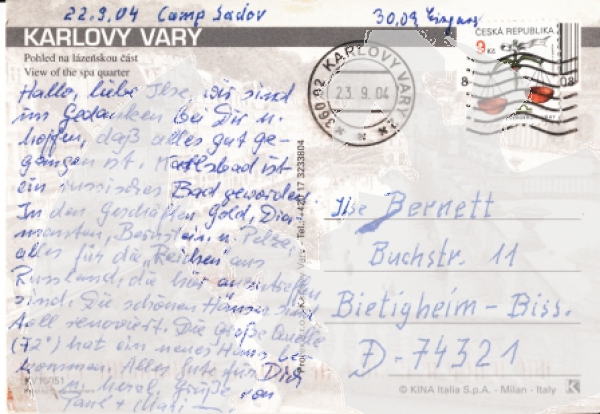 22.9.04 Camp Sadov
30,09
KARLOVY VARY
Pohled na lázeňskou část
View of the spa quarter
Hallo, liebe Ilse, wir sind
in Gedanken bei Dir u.
hoffen, daß alles gut ge-
gangen ist. Karlsbad ist
ein russisches Bad geworden.
In den Geschäften Gold, Dia-
manten, Bernstein u. Pelze,
alles für die „Reichen" aus
Russland, die hier anzutreffen
sind. Die schönen Häuser sind
toll renoviert. Die große Quelle
(72°) hat ein neues Haus be-
kommen. Alles Gute für Dich
u. herzl. Grüße von
ČESKÁ REPUBLIKA
9 Kč
360 02 KARLOVY VARY 2
23.9.04
Ilse Bernett
Buchstr. 11
Bietigheim-Biss.
D-74321
Vary - Tel.: +420 17 3233804
© KINA Italia S.p.A. - Milan - Italy
K